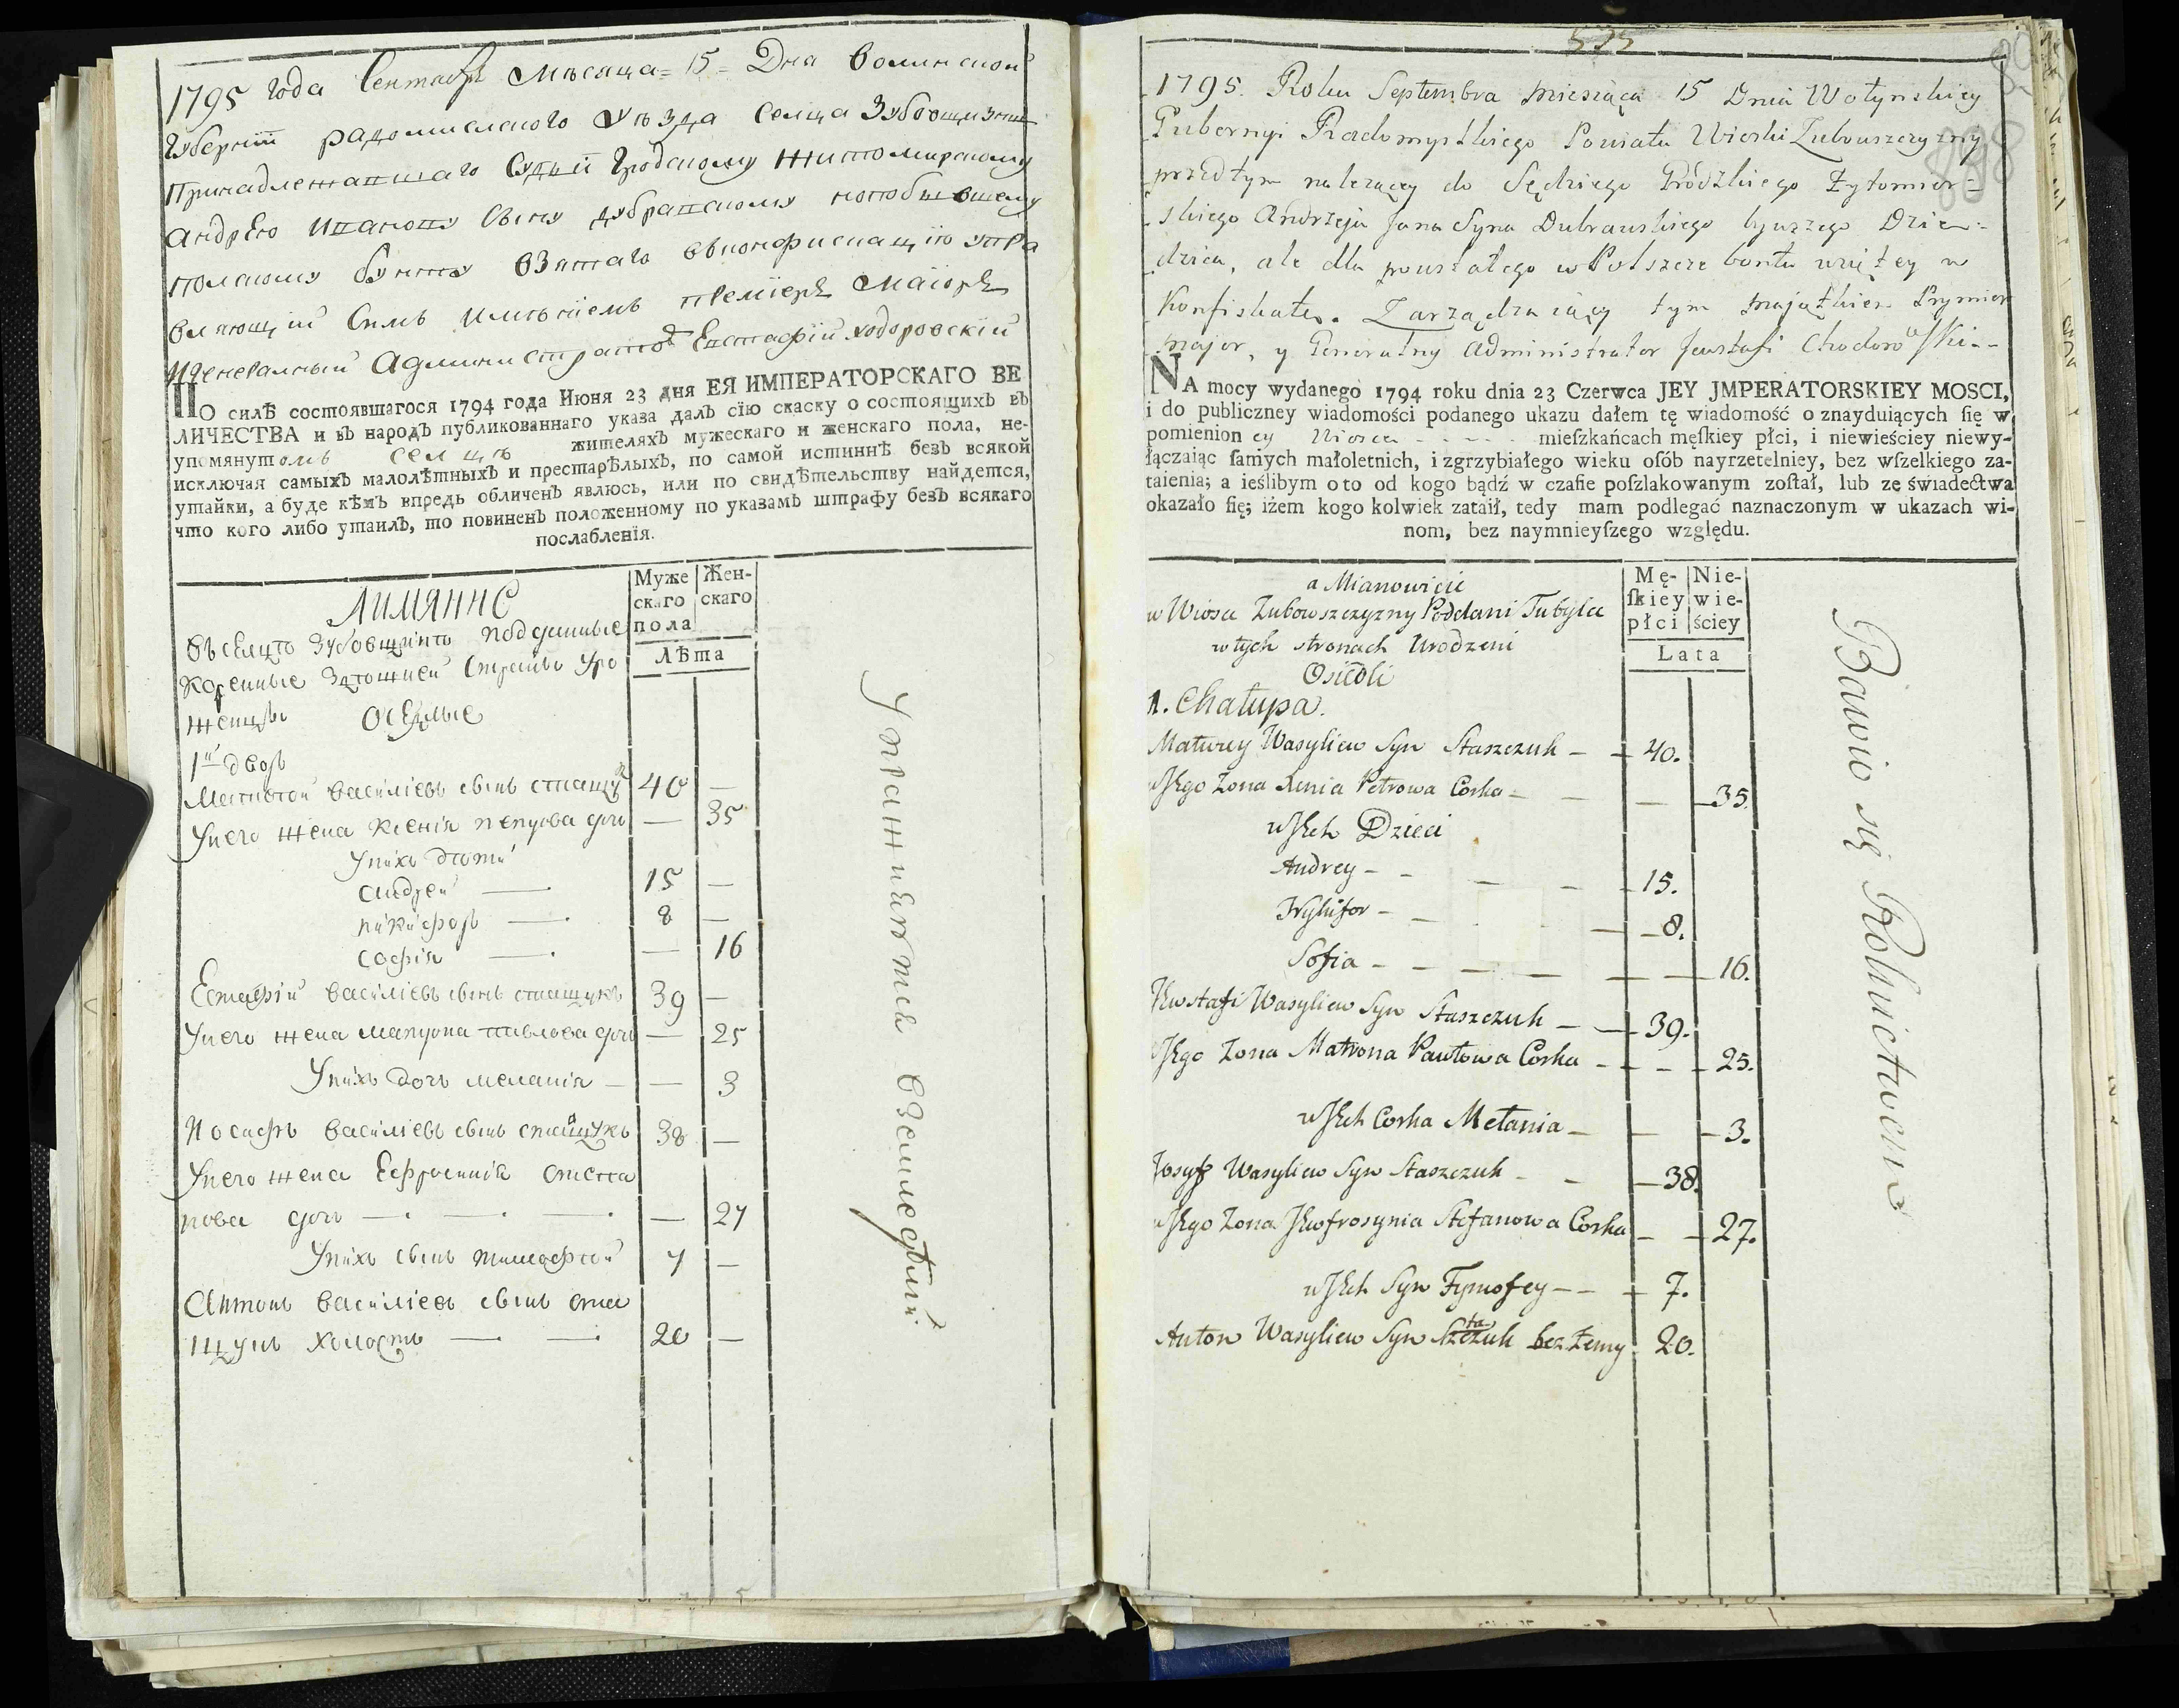 1795 года Сентебря Мѣсяца = 15 = Дня волинской
Губернїи радомислского Уѣзда Селца Зубовщизни
Принадлежавшаго Судьи Гродскому Житомирскому
андрЕю Ивановu Сыну дубравскому
полскому бунту взятаго вконфискацїю упра
вляющїй Симъ имѣнїемъ премїеръ маїоръ
Иgенералный администраторъ Евстафїй ходоровскїй
ПО силѣ состоявшагося 1794 года Июня 23 дня ЕЯ ИМПЕРАТОРСКАГО ВЕ
ЛИЧЕСТВА и въ народъ публикованнаго указа далъ сїю скаску о состоящихъ въ
упомянутомъ селцѣ жителяхъ мужескаго и женскаго пола, не-
исключая самыхъ малолѣтныхъ и престарѣлыхъ, по самой истиннѣ безъ всякой
утайки, а буде кѣмъ впредь обличенъ явлюсь, или по свидѣтельству найдется,
что кого либо утаилъ, то повиненъ положенному по указамъ штрафу безъ всякаго
послабленїя.
Муже Жен-
скаго скаго
пола
Лѣта
Аимянно
Въселцѣ Зубовщинѣ подданные
Коренные Здѣшней Стороны Уро
женцы Осѣдлые
1й дворъ
Матвѣй василїевъ сынъ сташукъ 40 —
Унего жена ксенїя петрова дочь — 35
Унихъ дѣти
андрей — 15 —
никифоръ — 8 —
софїя — — 16
Естафїй василїевъ сынъ сташукъ 39 —
Унего жена матрона павлова дочь — 25
Унихъ дочь меланїя — — 3
Иосифъ василїевъ сынъ сташукъ 38 —
Унего жена Ефросинїя стефа
нова дочь — — — — 27
Унихъ сынъ тимофѣй 7 —
Антонъ василїевъ сынъ ста
щукъ холостъ — — 20 —
Упражняютса вземледѣлїй
535
1795. Roku Septembra miesiąca 15 Dnia Wołynskiey
Gubernyi Radomyslkiego Powiatu Wioski Zubowszczyzny
przedtym należącey do Sędziego Gródzkiego Żytomier=
skiego Andrzeja Jana Syna Dubrawskiego bywszego Dzie=
dzica, ale dla powstałego w Polszcze bontu wziętey w
Konfiskatę. Zarządzaiący tym majątkiem Prymier
major, y Generalny Administrator Jewstafi Chodorowski--
NA mocy wydanego 1794 roku dnia 23 Czerwca JEY JMPERATORSKIEY MOSCI,
i do publiczney wiadomości podanego ukazu dałem tę wiadomość o znayduiących ſię w
pomienioney Wiosce - - - - mieſzkańcach męſkiey płci, i niewieściey niewy-
łączaiąc ſamych małoletnich, i zgrzybiałego wieku oſób nayrzetelniey, bez wſzelkiego za-
taienia; a ieślibym o to od kogo bądź w czaſie poſzlakowanym zoſtał, lub ze świadectwa
okazało ſię; iżem kogo kolwiek zataił, tedy mam podlegać naznaczonym w ukazach wi-
nom, bez naymnieyſzego względu.
Mę- Nie-
ſkiey wie-
płci ściey
Lata
a Mianowicie
w Wiosce Zubowszczyzny Poddani Tubylce
w tych stronach Urodzeni
Osiedli
1. Chałupa.
Matwiey Wasyliew Syn Staszczuk — — 40.
u Jego Zona Xenia Petrowa Corka — — — 35.
u Jch Dzieci
Andrey - - — — 15.
Nykifor - — — 8.
Sofia - - — — — — 16.
Jewstafi Wasyliew Syn Staszczuk — — 39.
u Jego Zona Matrona Pawłowa Corka - - - 25.
u Jch Corka Mełania — — — 3.
Josyf Wasyliew Syn Staszczuk - - — 38.
u Jego Zona Jewfrosynia Stefanowa Corka - - 27.
u Jch Syn Tymofey - - — 7.
ta
Anton Wasyliew Syn Szczuk bez Żemy. 20.
Bawio się Rolnictwem